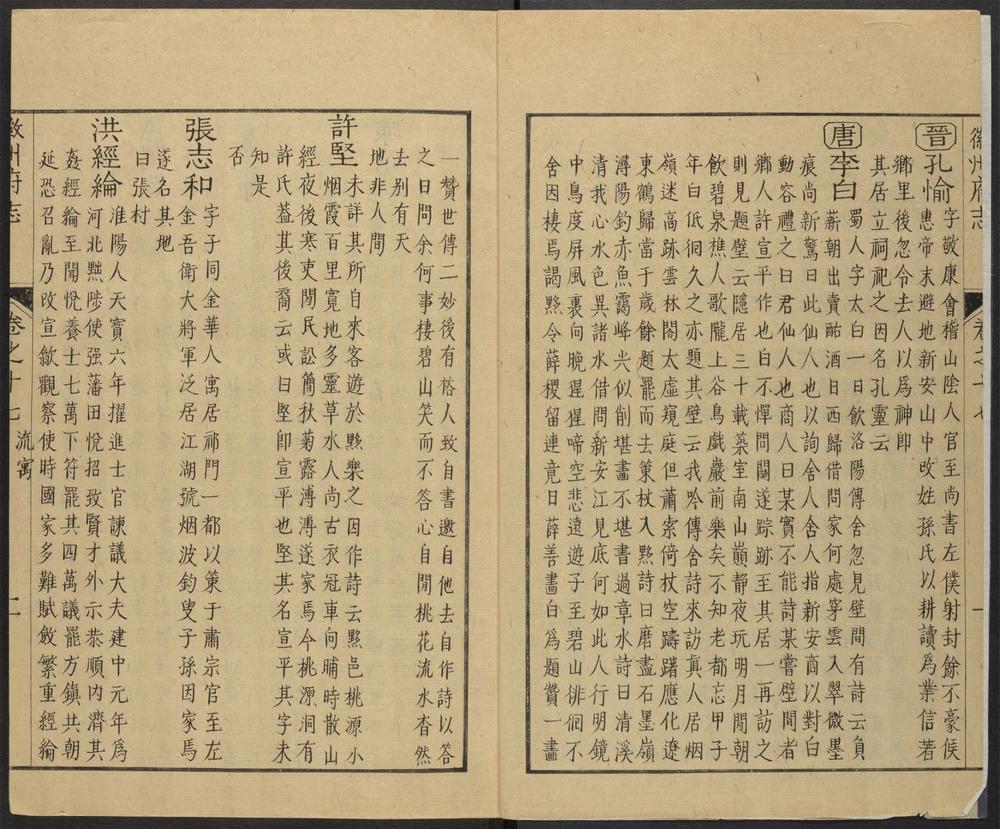 徽州府志
卷之十七
一
晉孔愉字敬康會稽山陰人官至尚書左僕射封餘不豪侯
惠帝末避地新安山中改姓孫氏以耕讀爲業信著
鄉里後忽令去人以爲神即
其居立祠祀之因名孔靈云
唐李白蜀人字太白一日飲洛陽傳舍忽見壁間有詩云負
薪朝出賣酤酒日西歸借問家何處穿雲入翠微墨
痕尚新驚曰此仙人也以詢舍人舍人指新安商以對白
動容禮之曰君仙人也商人曰某實不能詩某嘗壁間者
鄉人許宣平作也白不憚問關遂踪跡至其居一再訪之
則見題壁云隱居三十載築室南山巔靜夜玩明月閒朝
飲碧泉樵人歌隴上谷鳥戲巖前樂矣不知老都忘甲子
年白低徊久之亦題其壁云我吟傳舍詩來訪眞人居烟
嶺迷高跡雲林問太虛窺庭但蕭索倚杖空躊躇應化遼
東鶴歸當于歲餘題罷而去策杖入黟詩曰磨盡石墨嶺
潯陽釣赤魚靄峰尖似削堪畫不堪書過章水詩曰清溪
清我心水色異諸水借問新安江見底何如此人行明鏡
中鳥度屏風裏向晚猩猩啼空悲遠遊子至碧山徘徊不
舍因棲焉謁黟令薛稷留連竟日薛善畫白爲題贊一畫
一贊世傳二妙後有裕人致自書邀自他去自作詩以答
之曰問余何事棲碧山笑而不答心自閒桃花流水杳然
去别有天
地非人間
許堅未詳其所自來客遊於黟樂之因作詩云黟邑桃源小
烟霞百里寛地多靈草水人尚古衣冠車向晡時散山
經夜後寒吏閒民訟簡秋菊露溥溥遂家焉今桃源洞有
許氏葢其後裔云或曰堅卽宣平也堅其名宣平其字未
知是
否
張志和字子同金華人寓居祁門一都以策于肅宗官至左
金吾衛大將軍泛居江湖號烟波釣叟子孫因家焉
遂名其地
曰張村
洪經綸淮陽人天寶六年擢進士官諫議大夫建中元年爲
河北黜陟使强藩田悅招致賢才外示恭順内濟其
姦經綸至聞悅養士七萬下符罷其四萬議罷方鎮共朝
延恐召亂乃改宣歙觀察使時國家多難賦斂繁重經綸
徽州府志
卷之十七
流寓
二